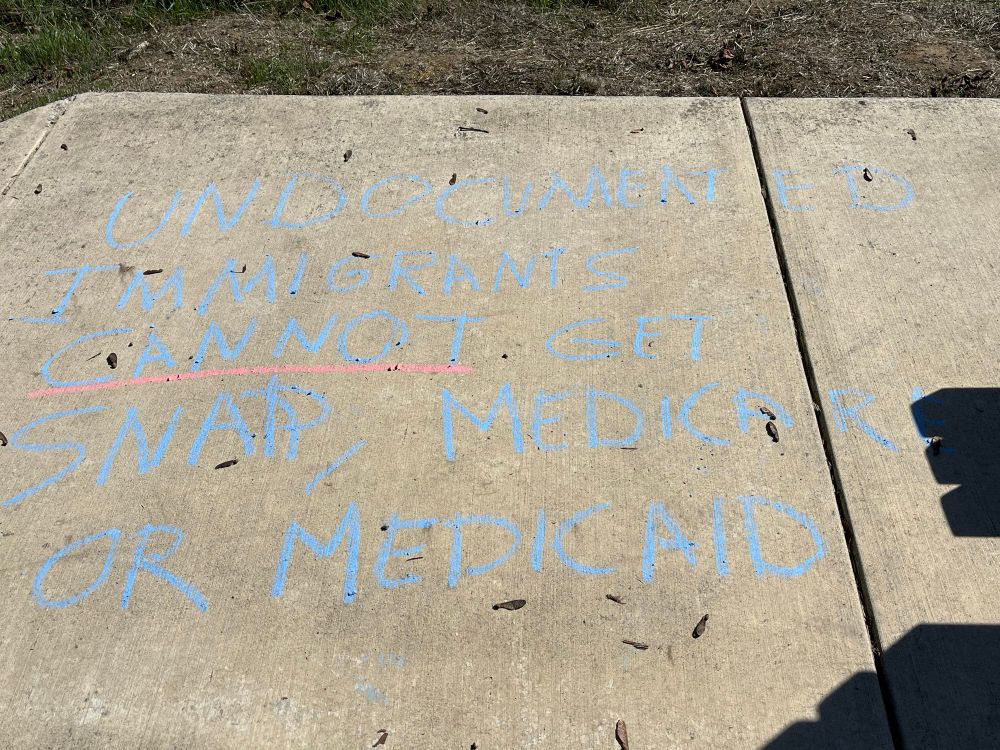 UNDOCUMENTED
IMMIGRANTS
CANNOT GET
SNAP, MEDICARE
OR MEDICAID